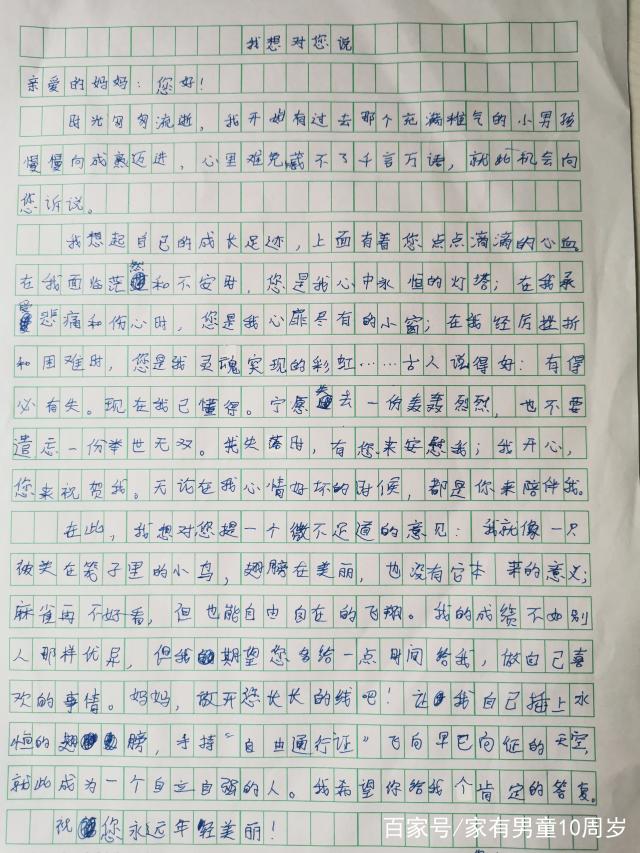 我想对您说
亲爱的妈妈：您好！
时光匆匆流逝，我开始有过去那个充满稚气的小男孩
慢慢向成熟迈进，心里难免藏不了千言万语，就此机会向
您诉说。
我想起自己的成长足迹，上面有着您点点滴滴的心血。
在我面临茫然和不安时，您是我心中永恒的灯塔；在我承
受悲痛和伤心时，您是我心扉尽有的小窗；在我经历挫折
和困难时，您是我灵魂实现的彩虹……古人说得好：有得
必有失。现在我已懂得。宁愿失去一份轰轰烈烈，也不要
遗忘一份举世无双。我失落时，有您来安慰我；我开心，
您来祝贺我。无论在我心情好坏的时候，都是你来陪伴我。
在此，我想对您提一个微不足道的意见：我就像一只
被关在笼子里的小鸟，翅膀在美丽，也没有它本来的意义；
麻雀再不好看，但也能自由自在的飞翔。我的成绩不如别
人那样优异，但我期望您多给一点时间给我，做自己喜
欢的事情。妈妈，放开您长长的线吧！让我自己插上水
恒的翅膀，手持“自由通行证”飞向早已向征的天空，
就此成为一个自立自强的人。我希望你给我个肯定的答复。
祝您永远年轻美丽！
百家号/家有男童10周岁